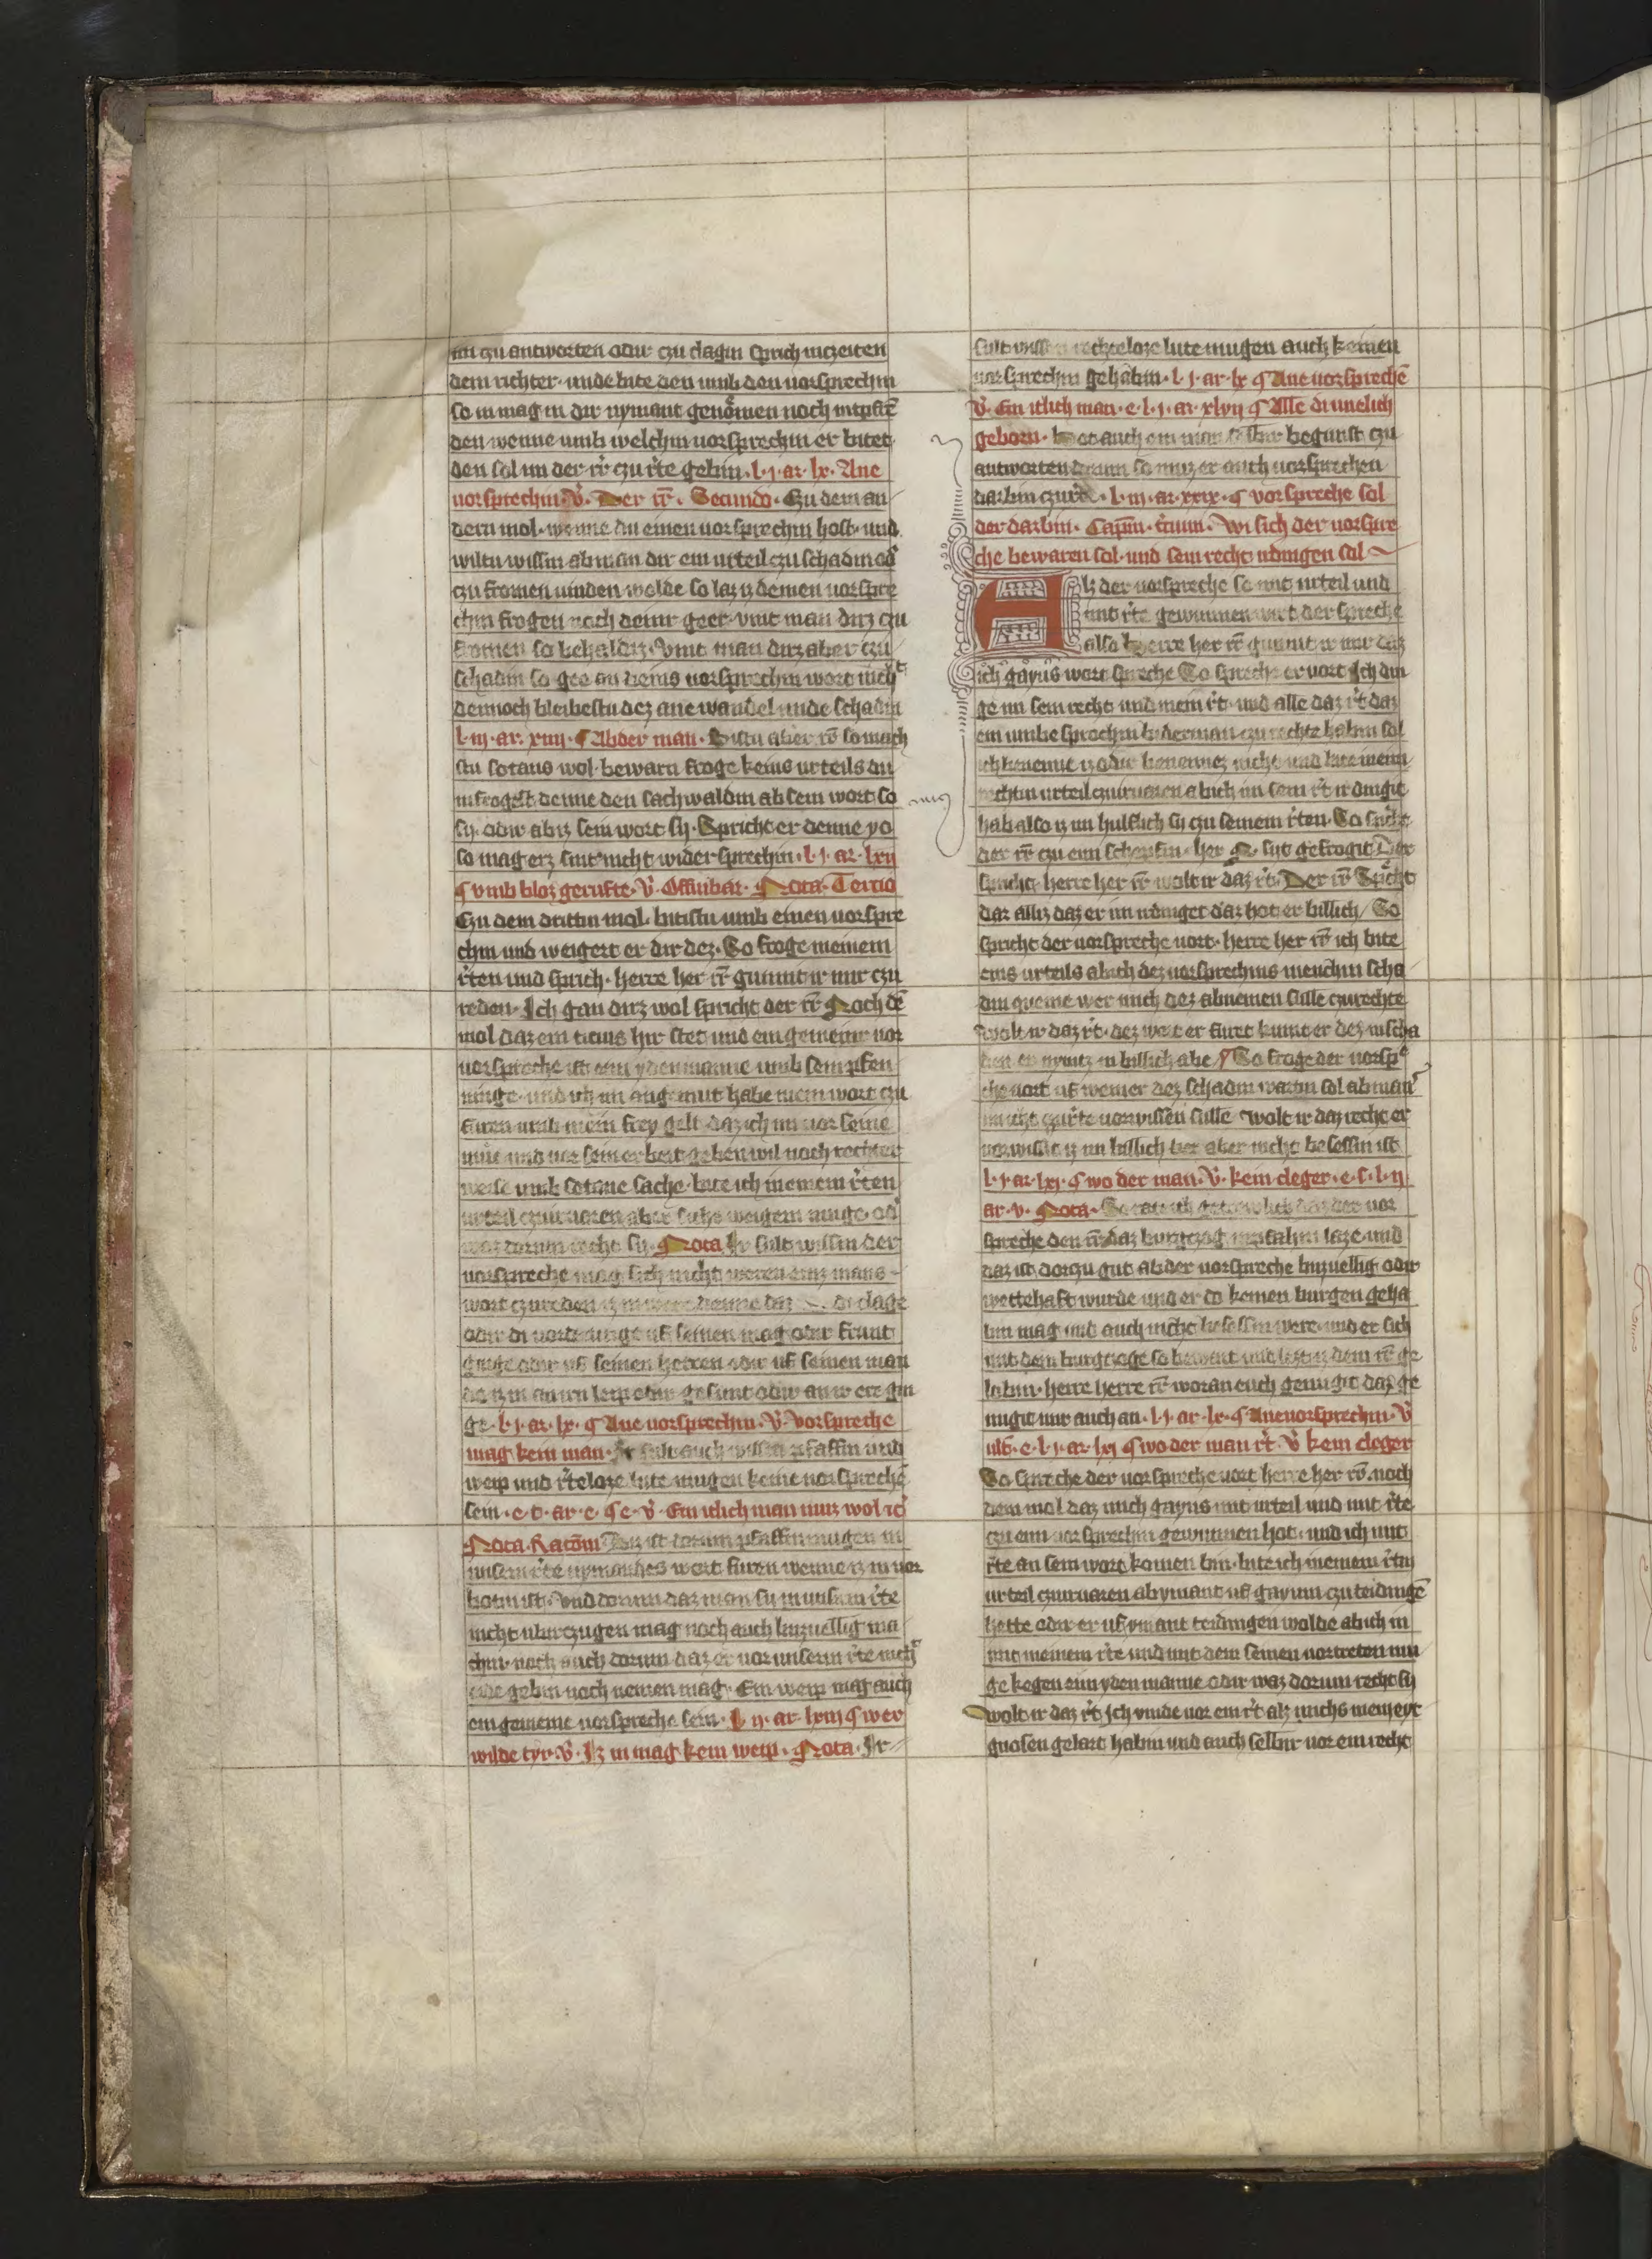 im czu antworten odir czu clagin sprich inczeiten
dem richter · unde bite den umb den vorsprechin
so in mag in dir nymant genomen noch intpfrē
den wenne umb welchin vorsprechin er bitet
den sol im der rr̄ czu rͥte gebin · l · j · ar · lx · Ane
vorsprechin · v̊ · Der rr̄ · Secundo · Czu dem an
dern mol · wenne du einen vorsprechin host · und
wiltu wissin ab man dir ein urteil czu schadin od̛
czu fromen vinden wolde so laz iz deinen vorspre
chin frogen noch deinr geer · vint man dirz czu
fromen so behaldiz · Vint man dirz aber czu
schadin so gee an deins vorsprechin wort nichͭ
dennoch bleibestu dez ane wandel unde schadin
l · iij · ar · xiiij · ¶ Ab der man · Bistu aber rr̄ so mach
stu sotans wol · bewarn froge keins urteils du
infrogest denne den sachwaldin ab sein wort so
sij · odir ab iz sein wort sij · Spricht er denne yo
so mag erz sint nicht widersprechin · l · j · ar · lxij
¶ umb bloz gerufte · v̊ · Offinbar · Nota · Tercio
Czu dem drittin mol · bitistu umb einen vorspre
chin und weigert er dir dez · So froge meinem
rͥten und sprich · herre her rr̄ gunnit ir mir czu
reden · Ich gan dirz wol spricht der rr̄ Noch dē
mol daz ein ticius hir stet und ein gemeinir vor
vorspreche ist eim ydenmanne umb sein pfen
ninge · und ich im angemut habe mein wort czu
furen umb mein frey gelt daz ich im vor seine
mue und vor sein erbeit geben wil noch rechter
weise umb sotane sache · bite ich meinem rͥten
urteil czuiruaren aber sichs weigern muge · od̛
waz dorum recht sij · Nota Ir sult wissin der
vorspreche mag sich nicht weren einz mans
wort czu reden iz in were denne daz di clage
odir di vorderunge uf seinen mag odir frunt
ginge odir uf seinen herren odir uf seinen man
de iz in an irn leip odir gesunt odir an ir ere gin
ge · l · j · ar · lx · ¶ Ane vorsprechin · v̊ · Vorspreche
mag kein man · Ir sult auch wissin pfaffin und
weip und rͥteloze lute mugen keine vorsprechē
sein · e · t · ar · e · ¶ e · v̊ · Ein itlich man muz wol
Nota · Racōm Diz ist dorum pfaffin mugen in
unserm rͥte nymandes wort furen wenne iz in vor
botin ist · Und dorum daz man sij in unserm rͥte
nicht ubirczugen mag noch auch buzvellig ma
chin · noch auch dorum daz er vor unserm rͥte nichͭ
gebin noch nemen mag · Ein weip mag auch
ein gemeine vorspreche sein · l · ij · ar · lxiij ¶ wer
wilde tyr · v̊ · Iz in mag kein weip · Nota · Ir
sult wissin rechteloze lute mugen auch keinen
vorsprechin gehabin · l · j · ar · lx ¶ Ane vorsprechē
v̊ · Ein itlich man · e · l · j · ar · xlvij ¶ Alle di unelich
geborn · Hot auch ein man selbir begunst czu
antworten dorum so muz er auch vorsprechen
darbin czu rͥte · l · iij · ar · xxix · ¶ vorspreche sol
der darbin · Capm̄ · t̊cium · Wi sich der vorspre
che bewaren sol · und sein recht udingen sol
Alz der vorspreche so mit urteil und
mit rͥte gewunnen wirt der spreche
also herre her rr̄ gunnit ir mir daz
ich gayus wort spreche So spreche er vort Ich din
ge im sein recht und mein rͥt · und alle daz rͥt daz
ein umbesprochin biderman czu rechte habin sol
ich benenne iz odir benennez nicht und bite meim
rechtin urteil czuiruaren ab ich im sein rͥt irdingit
hab also iz im hulflich sij czu seinem rͥten · So sprͥcht
der rr̄ czu eim scheppin · her N · sijt gefrogit Der
spricht · herre her rr̄ wolt ir daz rͥt · Der rr̄ Spͥcht
daz alliz daz er im udinget daz hot er billich / So
spricht der vorspreche vort · herre her rr̄ ich bite
eins urteils ab ich dez vorsprechins menchin scha
din queme wer mich dez abnemen sulle czu rechte
wolt ir daz rͥt · dez wort er furet kumt er dez in scha
den er nymtz in billich abe / So froge der vorspͤ
che vort uf wemer dez schadin wartin sol ab man
nicht czu rͥte vorwissen sulle wolt ir daz recht er
vorwissit iz im billich ber aber nicht besessin ist
l · j · ar · lxj · ¶ wo der man · v̊ · kein cleger · e · s · l · ij
ar · v · Nota · So rate ich getrewlich daz der vor
spreche den rr̄ daz burgczog intpfahin laze und
daz ist dorczu gut ab der vorspreche buzvellig odir
wettehaft wurde und er do keinen burgen geha
bin mag und auch nicht besessin were · und er sich
mit dem burgczoge so bewart und leztiz dem rr̄ ge
lobin · herre herre rr̄ woran euch genugit daz ge
nugit mir auch an · l · j · ar · lx · ¶ Ane vorsprechin · v̊
ult̄ · e · l · j · ar · lxj ¶ wo der man rͥt · v̊ kein cleger
So spreche der vorspreche vort herre her rr̄ · noch
dem mol daz mich gayus mit urteil und mit rͥte
czu eim vorsprechin gewunnen hot · und ich mit
rͥte an sein wort komen bin · bite ich meinem rͥtin
urteil czuiruaren ab ymant uf gayum czu teidingē
hette odir er uf ymant teidingen wolde ab ich in
mit meinem rͥte und mit dem seinen vortreten mu
ge kegen eim yden manne odir waz dorum recht sij
wolt ir daz rͥt Ich vinde vor ein rͥt alz michs mein eyt
gnosen gelart habin und auch selbir vor ein recht